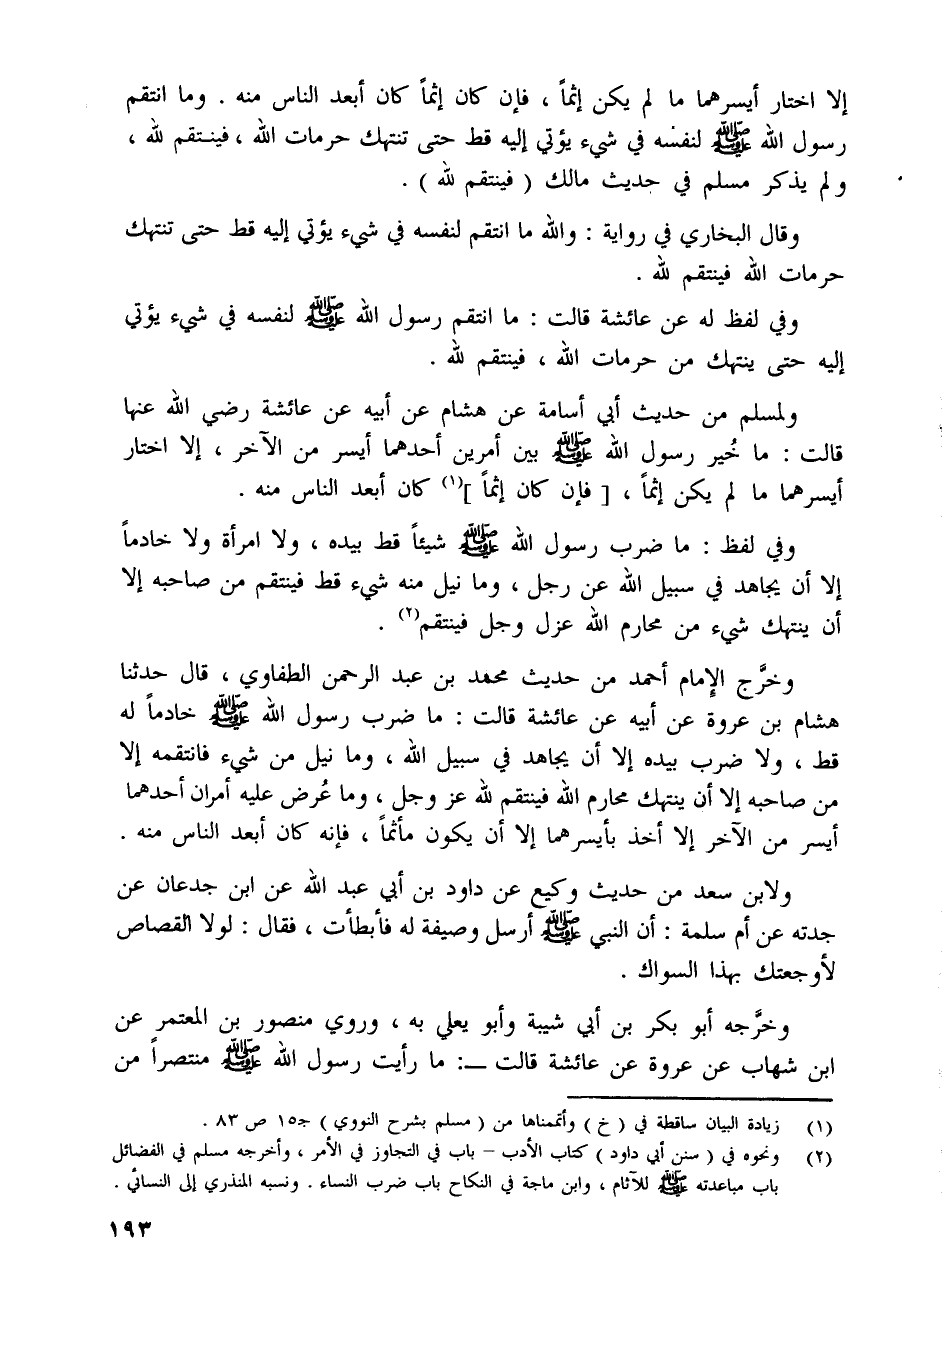 إلا اختار أيسرهما ما لم يكن إثماً ، فإن كان إثماً كان أبعد الناس منه . وما انتقم
رسول الله ﷺ لنفسه في شيء يؤتي إليه قط حتى تنتهك حرمات الله ، فينتقم لله ،
ولم يذكر مسلم في حديث مالك ( فينتقم لله ) .
وقال البخاري في رواية : والله ما انتقم لنفسه في شيء يؤتي إليه قط حتى تنتهك
حرمات الله فينتقم لله .
وفي لفظ له عن عائشة قالت : ما انتقم رسول الله ﷺ لنفسه في شيء يؤتي
إليه حتى ينتهك من حرمات الله ، فينتقم لله .
ولمسلم من حديث أبي أسامة عن هشام عن أبيه عن عائشة رضي الله عنها
قالت : ما خُير رسول الله ﷺ بين أمرين أحدهما أيسر من الآخر ، إلا اختار
أيسرهما ما لم يكن إثماً ، [ فإن كان إثماً ](١) كان أبعد الناس منه .
وفي لفظ : ما ضرب رسول الله ﷺ شيئاً قط بيده ، ولا امرأة ولا خادماً
إلا أن يجاهد في سبيل الله عن رجل ، وما نيل منه شيء قط فينتقم من صاحبه إلا
أن ينتهك شيء من محارم الله عزل وجل فينتقم(٢) .
وخرَّج الإمام أحمد من حديث محمد بن عبد الرحمن الطفاوي ، قال حدثنا
هشام بن عروة عن أبيه عن عائشة قالت : ما ضرب رسول الله ﷺ خادماً له
قط ، ولا ضرب بيده إلا أن يجاهد في سبيل الله ، وما نيل من شيء فانتقمه إلا
من صاحبه إلا أن ينتهك محارم الله فينتقم لله عز وجل ، وما عُرض عليه أمران أحدهما
أيسر من الآخر إلا أخذ بأيسرهما إلا أن يكون مأثماً ، فإنه كان أبعد الناس منه .
ولابن سعد من حديث وكيع عن داود بن أبي عبد الله عن ابن جدعان عن
جدته عن أم سلمة : أن النبي ﷺ أرسل وصيفة له فأبطأت ، فقال : لولا القصاص
لأوجعتك بهذا السواك .
وخرَّجه أبو بكر بن أبي شيبة وأبو يعلي به ، وروي منصور بن المعتمر عن
ابن شهاب عن عروة عن عائشة قالت ــ: ما رأيت رسول الله ﷺ منتصراً من
(١) زيادة البيان ساقطة في ( خ ) وأتممناها من ( مسلم بشرح النووي ) جـ١٥ ص ٨٣ .
(٢) ونحوه في ( سنن أبي داود ) كتاب الأدب – باب في التجاوز في الأمر ، وأخرجه مسلم في الفضائل
باب مباعدته ﷺ للآثام ، وابن ماجة في النكاح باب ضرب النساء . ونسبه المنذري إلى النسائي .
١٩٣